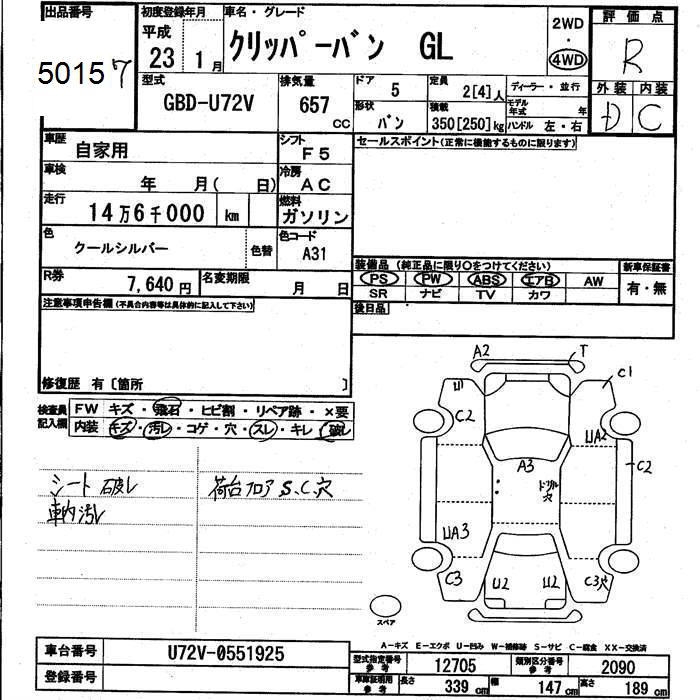 出品番号 初度登録年月 車名・グレード 2WD 評価点
50157 平成 23 1月 クリッパーバン GL ・ 4WD R
型式 排気量 ドア 5 定員 2[4]人 ディーラー・並行 外装 内装
GBD-U72V 657 CC 形状 バン 積載 350[250]kg モデル年式 年 ハンドル 左・右 D C
車歴 自家用 シフト F5 セールスポイント(正常に機能するものに限ります)
車検 年 月( 日) 冷房 AC
走行 14万6千000 km 燃料 ガソリン
色 クールシルバー 色替 色コード A31
装備品 (純正品に限り○をつけてください) 新車保証書
R券 7,640円 名変期限 月 日 PS PW ABS エアB AW 有・無
SR ナビ TV カワ
注意事項申告欄(不具合内容等は具体的に記入して下さい) 後日品
修復歴 有〔箇所 〕
検査員記入欄 FW キズ・飛石・ヒビ割・リペア跡・×要
内装 キズ・汚レ・コゲ・穴・スレ・キレ・破レ
シート破レ 荷台フロアS、C、穴
車内汚レ
A2 T
U1 C1
C2 UA2
A3 C2
ドリル穴
UA3
C3 U2 U2 C3穴
スペア
A-キズ E-エクボ U-凹み W-補修跡 S-サビ C-腐食 XX-交換済
車台番号 U72V-0551925
型式指定番号 参考 12705 類別区分番号 参考 2090
登録番号 車庫証明用 参考 長さ 339cm 幅 147cm 高さ 189cm